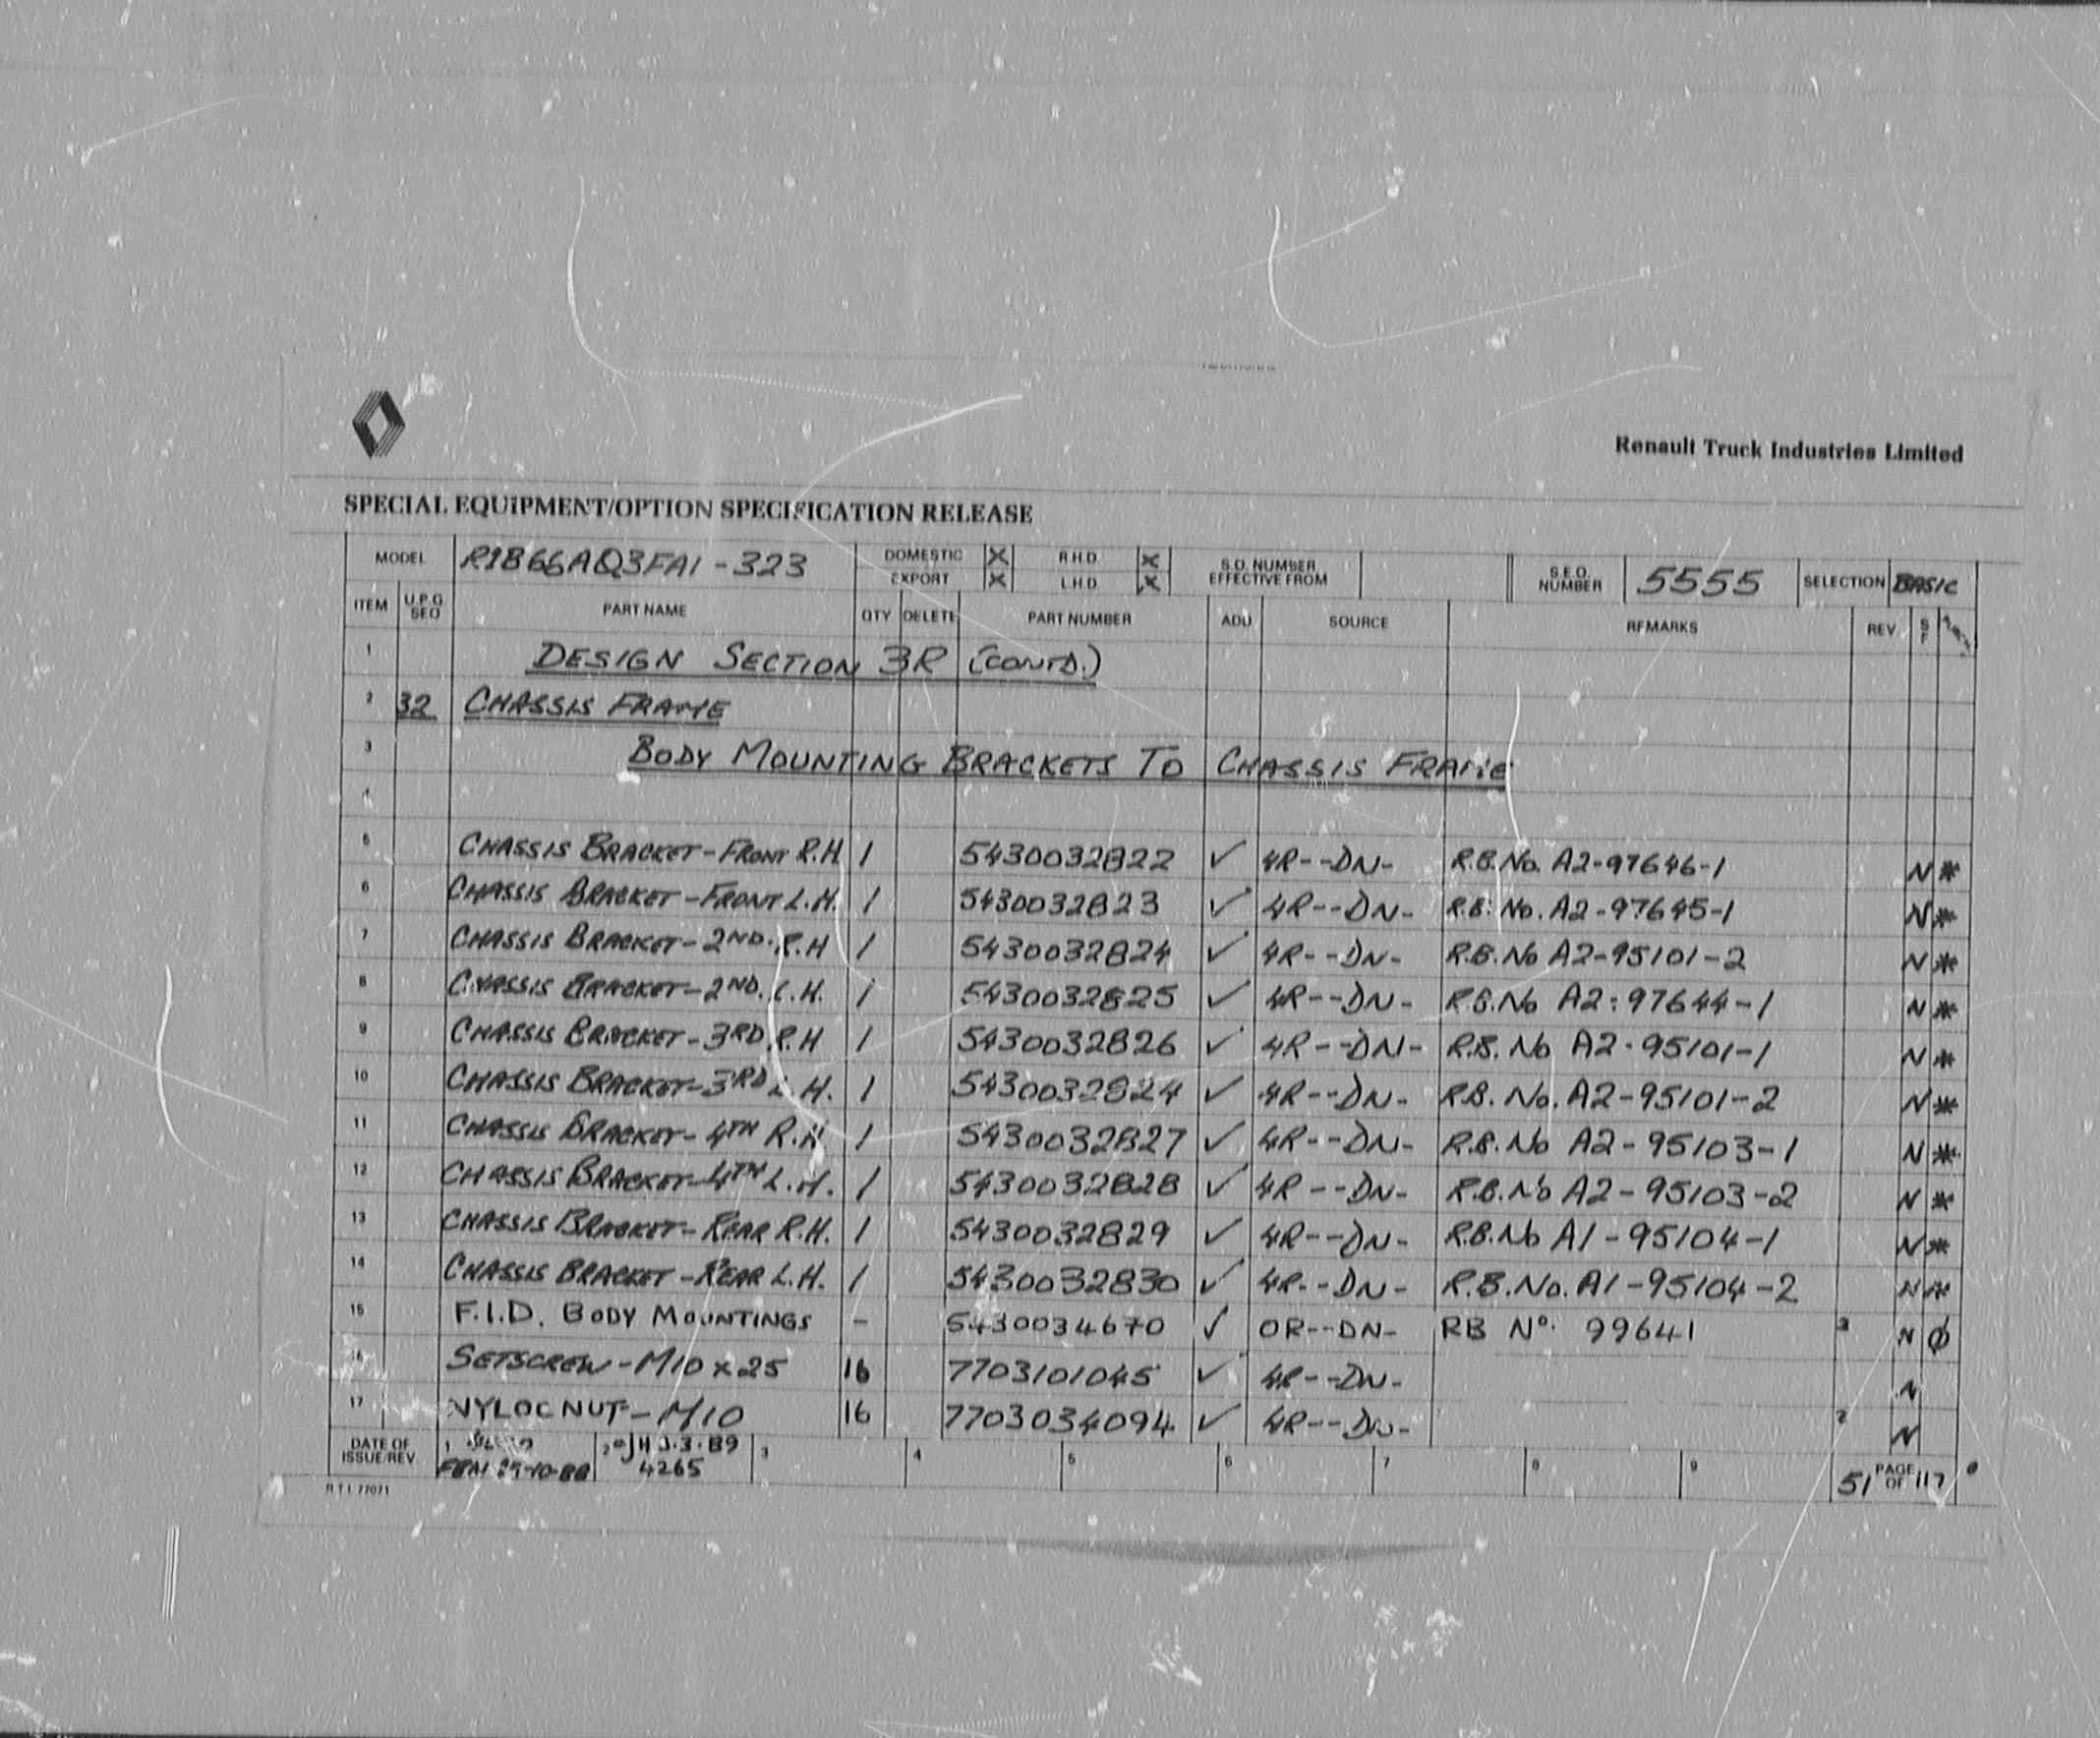 Renault Truck Industries Limited
SPECIAL EQUIPMENT/OPTION SPECIFICATION RELEASE
MODEL R1866AQ3FA1-323 DOMESTIC X R.H.D. X S.O. NUMBER EFFECTIVE FROM S.E.O. NUMBER 5555 SELECTION BASIC
EXPORT X L.H.D. X
ITEM U.P.G SEQ PART NAME QTY DELETE PART NUMBER ADU SOURCE REMARKS REV. S F
1 DESIGN SECTION 3R (CONTD.)
2 32 CHASSIS FRAME
3 BODY MOUNTING BRACKETS TO CHASSIS FRAME
4
5 CHASSIS BRACKET-FRONT R.H 1 5430032822 ✓ 4R--DN- R.B.No. A2-97646-1 N *
6 CHASSIS BRACKET-FRONT L.H. 1 5430032823 ✓ 4R--DN- R.B. No. A2-97645-1 N *
7 CHASSIS BRACKET-2ND. R.H 1 5430032824 ✓ 4R--DN- R.B.No A2-95101-2 N *
8 CHASSIS BRACKET-2ND. L.H. 1 5430032825 ✓ 4R--DN- R.B.No A2-97644-1 N *
9 CHASSIS BRACKET-3RD R.H 1 5430032826 ✓ 4R--DN- R.B. No A2-95101-1 N *
10 CHASSIS BRACKET-3RD L.H. 1 5430032824 ✓ 4R--DN- R.B. No. A2-95101-2 N *
11 CHASSIS BRACKET-4TH R.H 1 5430032827 ✓ 4R--DN- R.B.No A2-95103-1 N *
12 CHASSIS BRACKET-4TH L.H. 1 5430032828 ✓ 4R--DN- R.B.No A2-95103-2 N *
13 CHASSIS BRACKET-REAR R.H. 1 5430032829 ✓ 4R--DN- R.B.No A1-95104-1 N *
14 CHASSIS BRACKET-REAR L.H. 1 5430032830 ✓ 4R--DN- R.B.No. A1-95104-2 N *
15 F.I.D. BODY MOUNTINGS - 5430034670 ✓ 0R--DN- RB No. 99641 2 N Ø
16 SETSCREW-M10x25 16 7703101045 ✓ 4R--DN- N
17 NYLOC NUT-M10 16 7703034094 ✓ 4R--DN- 2 N
DATE OF ISSUE/REV. 1 2 JH 3.3.89 3 4 5 6 7 8 9 51 PAGE OF 117
4265
R.T.I. 77071